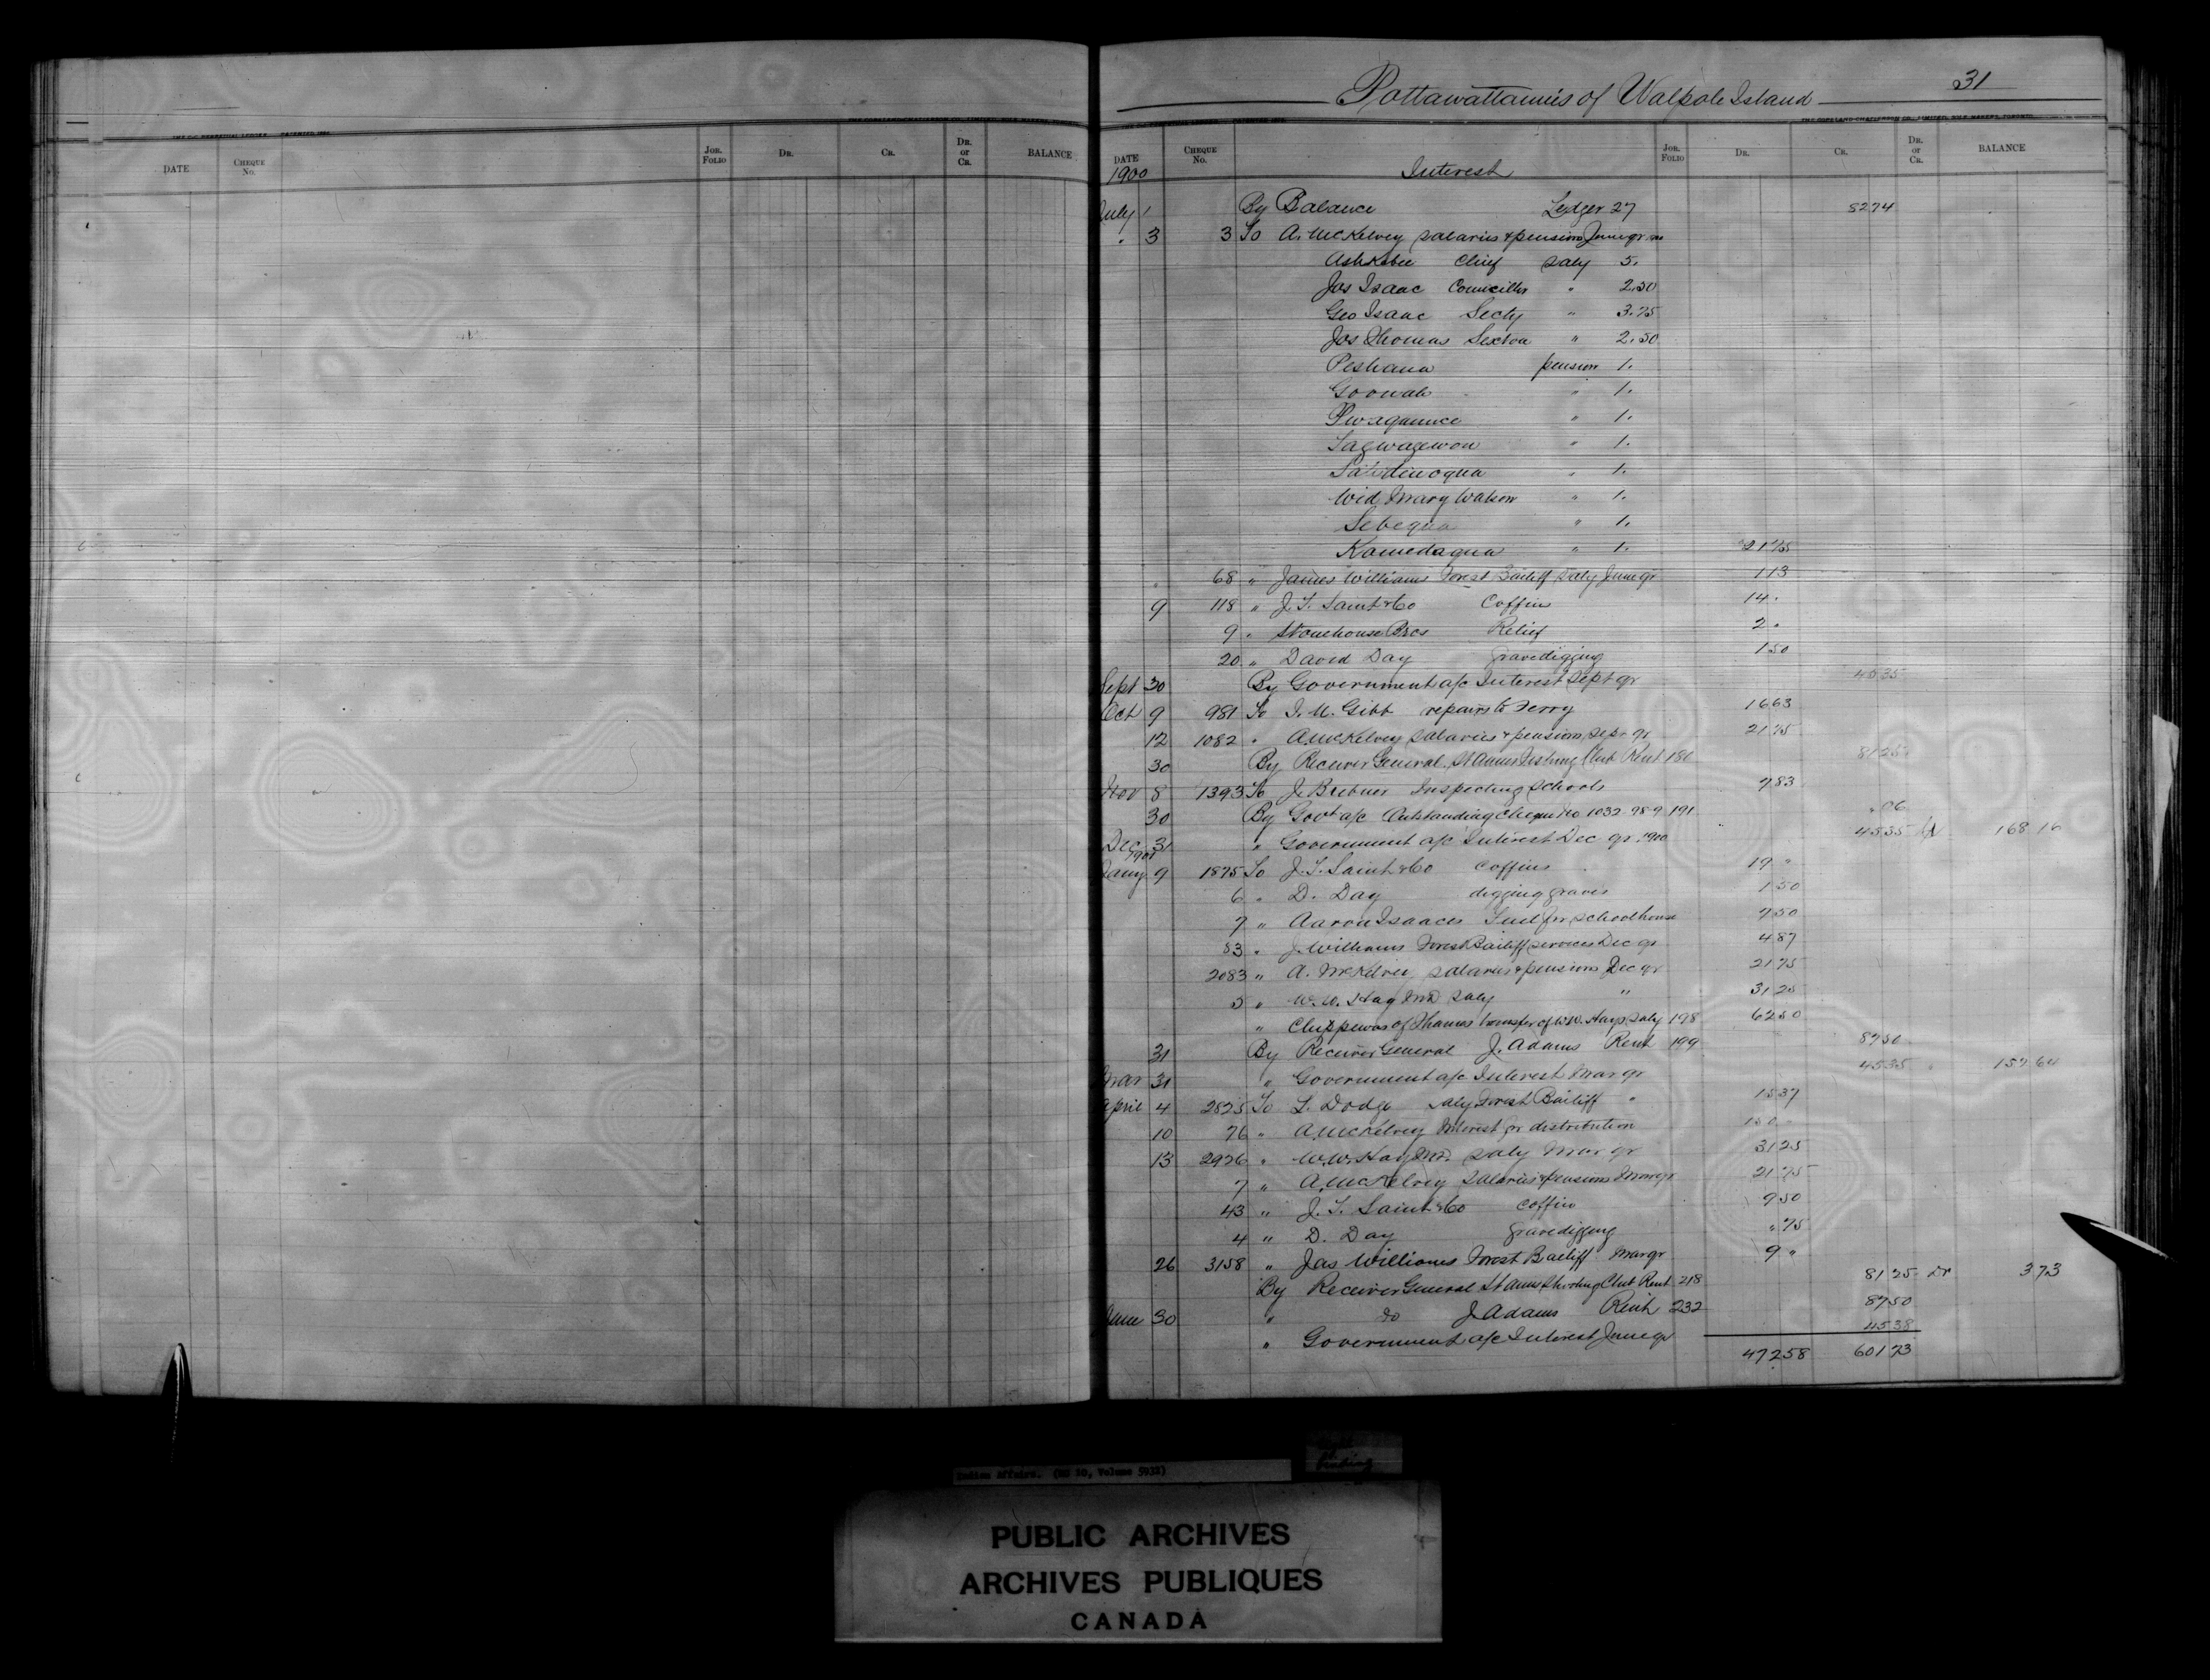 Pottawattamies of Walpole Island 31
DATE CHEQUE No. JOR. FOLIO DR. CR. DR. or CR. BALANCE
DATE CHEQUE No. JOR. FOLIO DR. CR. DR. or CR. BALANCE
1900 Interest
July 1 By Balance Ledger 27 82 74
" 3 3 To A. McKelvey salaries & pensions June qr
Ashkebee Chief saly 5.
Jos Isaac Councillor " 2.50
Geo Isaac Secty " 3.75
Jos Thomas Sexton " 2.50
Peshana pension 1.
Goowah " 1.
" 1.
Sagwagewon " 1.
" 1.
Wid Mary Watson " 1.
Sebequa " 1.
Kamedaqua " 1. 21 75
68 " James Williams Forest Bailiff Saly June qr 1 13
9 118 " J. T. Saint & Co Coffin 14 "
9 " Stonehouse Bros Relief 2 "
20 " David Day gravedigging 1 50
Sept 30 By Government a/c Interest Sept qr 45 35
Oct 9 981 To Gibb repairs to Ferry 16 63
12 1082 " A. McKelvey salaries & pensions Sept qr 21 75
30 By Receiver General St Annes Fishing Club Rent 180 81 25
Nov 8 1393 To J. Brebner Inspecting Schools 7 83
30 By Govt a/c Outstanding Cheque No 1032 - 98-9 191 " 06
Dec 31 " Government a/c Interest Dec qr 1900 45 35 168 16
1901
Jany 9 1875 To J. T. Saint & Co coffins 19 "
6 " D. Day digging graves 1 50
7 " Aaron Isaacs Fuel for schoolhouse 7 50
83 " J. Williams Forest Bailiff services Dec qr 4 87
2083 " A. McKelvey salaries & pensions Dec qr 21 75
5 " W. W. Hay MD saly " 31 25
" Chippewas of Thames transfer of W. W. Hays saly 198 62 50
31 By Receiver General J. Adams Rent 199 87 50
Mar 31 " Government a/c Interest Mar qr 45 35 " 152 64
April 4 2825 To L. Dodge saly Forest Bailiff " 15 37
10 76 " A. McKelvey Interest for distribution 150 "
13 2926 " W. W. Hay MD. saly Mar qr 31 25
7 " A. McKelvey Salaries & pensions Mar qr 21 75
43 " J. T. Saint & Co coffin 9 50
4 " D. Day gravedigging " 75
26 3158 " Jas Williams Forest Bailiff Mar qr 9 "
By Receiver General St Annes Shooting Club Rent 218 81 25 Dr 3 73
June 30 " do J Adams Rent 232 87 50
" Government a/c Interest June qr 45 38
472 58 601 73
Indian Affairs. (RG 10, Volume 5932)
Binding
PUBLIC ARCHIVES
ARCHIVES PUBLIQUES
CANADA